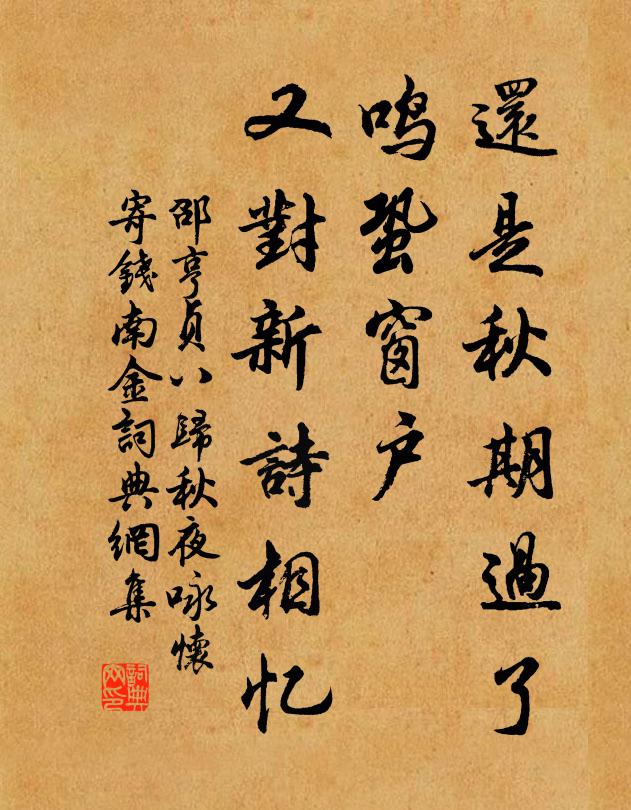 還是秋期過了
鳴蛩窗户
又對新詩相忆
邵亨貞八歸秋夜咏懷
寄錢南金詞典網集
詞典網印